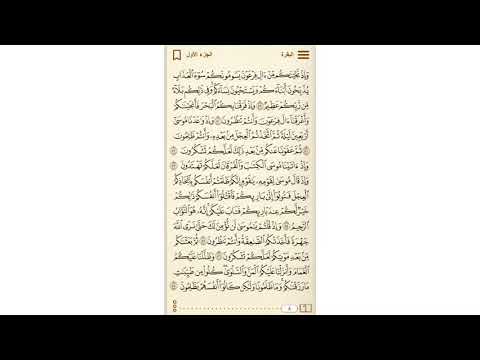 البقرة
الجزء الأول
وَإِذْ نَجَّيْنَٰكُم مِّنْ ءَالِ فِرْعَوْنَ يَسُومُونَكُمْ سُوٓءَ ٱلْعَذَابِ
يُذَبِّحُونَ أَبْنَآءَكُمْ وَيَسْتَحْيُونَ نِسَآءَكُمْ وَفِى ذَٰلِكُم بَلَآءٌ
مِّن رَّبِّكُمْ عَظِيمٌ ۝ وَإِذْ فَرَقْنَا بِكُمُ ٱلْبَحْرَ فَأَنجَيْنَٰكُمْ
وَأَغْرَقْنَآ ءَالَ فِرْعَوْنَ وَأَنتُمْ تَنظُرُونَ ۝ وَإِذْ وَٰعَدْنَا مُوسَىٰٓ
أَرْبَعِينَ لَيْلَةً ثُمَّ ٱتَّخَذْتُمُ ٱلْعِجْلَ مِنۢ بَعْدِهِۦ وَأَنتُمْ ظَٰلِمُونَ
۝ ثُمَّ عَفَوْنَا عَنكُم مِّنۢ بَعْدِ ذَٰلِكَ لَعَلَّكُمْ تَشْكُرُونَ ۝
وَإِذْ ءَاتَيْنَا مُوسَى ٱلْكِتَٰبَ وَٱلْفُرْقَانَ لَعَلَّكُمْ تَهْتَدُونَ ۝
وَإِذْ قَالَ مُوسَىٰ لِقَوْمِهِۦ يَٰقَوْمِ إِنَّكُمْ ظَلَمْتُمْ أَنفُسَكُم بِٱتِّخَاذِكُمُ
ٱلْعِجْلَ فَتُوبُوٓا۟ إِلَىٰ بَارِئِكُمْ فَٱقْتُلُوٓا۟ أَنفُسَكُمْ ذَٰلِكُمْ
خَيْرٌ لَّكُمْ عِندَ بَارِئِكُمْ فَتَابَ عَلَيْكُمْ إِنَّهُۥ هُوَ ٱلتَّوَّابُ
ٱلرَّحِيمُ ۝ وَإِذْ قُلْتُمْ يَٰمُوسَىٰ لَن نُّؤْمِنَ لَكَ حَتَّىٰ نَرَى ٱللَّهَ
جَهْرَةً فَأَخَذَتْكُمُ ٱلصَّٰعِقَةُ وَأَنتُمْ تَنظُرُونَ ۝ ثُمَّ بَعَثْنَٰكُم
مِّنۢ بَعْدِ مَوْتِكُمْ لَعَلَّكُمْ تَشْكُرُونَ ۝ وَظَلَّلْنَا عَلَيْكُمُ
ٱلْغَمَامَ وَأَنزَلْنَا عَلَيْكُمُ ٱلْمَنَّ وَٱلسَّلْوَىٰ كُلُوا۟ مِن طَيِّبَٰتِ
مَا رَزَقْنَٰكُمْ وَمَا ظَلَمُونَا وَلَٰكِن كَانُوٓا۟ أَنفُسَهُمْ يَظْلِمُونَ ۝